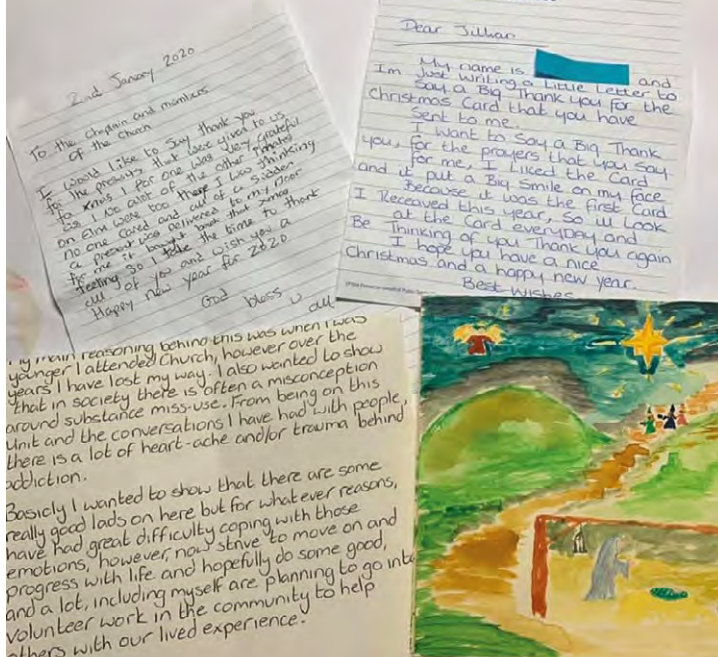 2nd January 2020
To the Chaplain and members
of the Church
I would like to Say thank you
for the presents that were given to us
for xmas I for one was very grateful
as I no alot of the other
on Elm were too I was thinking
no one cared and all of a sudden
a present was delivered to my Door
for me it brought back that xmas
feeling so I take the time to thank
all of you and wish you a
Happy new year for 2020
God bless u all
Dear Jillian
My name is and
Im Just writing a Little Letter to
Say a Big Thank you for the
Christmas Card that you have
Sent to me.
I want to Say a Big Thank
you, for the prayers that you Say
for me, I Liked the Card
and it put a Big Smile on my face
Because it was the first Card
I Receaved this year, So ill Look
at the Card everyday and
Be Thinking of you Thank you again
I hope you have a nice
Christmas and a happy new year.
Best Wishes
My main reasoning behind this was when I was
younger I attended Church, however over the
years I have lost my way. I also wanted to show
that in society there is often a misconception
around substance miss-use. From being on this
unit and the conversations I have had with people,
there is a lot of heart-ache and/or trauma behind
addiction.
Basicly I wanted to show that there are some
really good lads on here but for what ever reasons,
have had great difficulty coping with those
emotions, however, now strive to move on and
progress with life and hopefully do some good,
and a lot, including myself are planning to go into
volunteer work in the community to help
others with our lived experience.